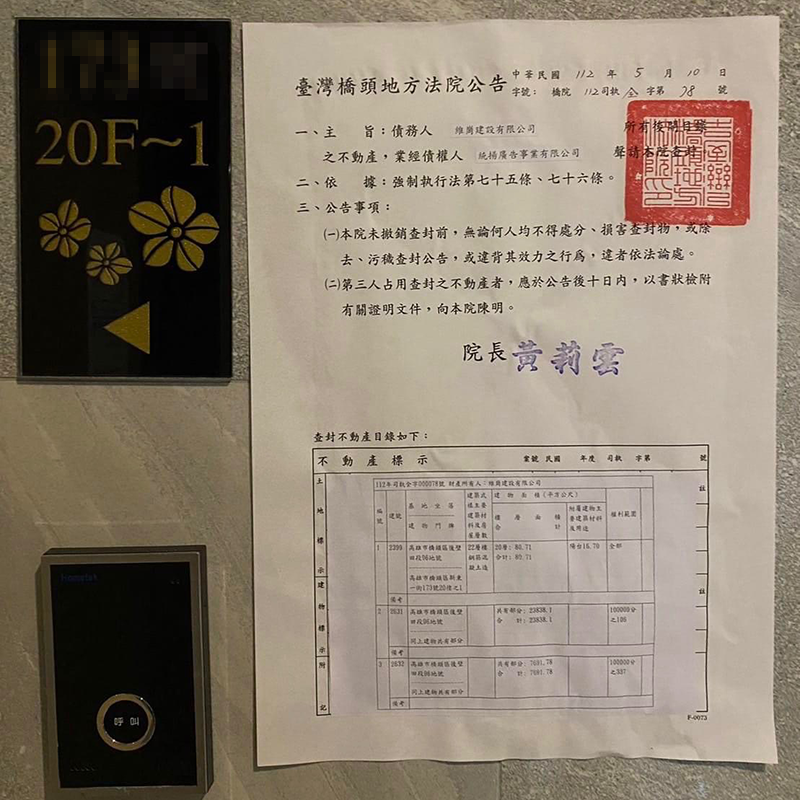 20F~1
呼叫
臺灣橋頭地方法院公告
中華民國 112 年 5 月 10 日
字號： 橋院 112司執 全 字第 78 號
一、主 旨：債務人 維崗建設有限公司 所有後開目錄
之不動產，業經債權人 統揚廣告事業有限公司 聲請本院查封
二、依 據：強制執行法第七十五條、七十六條。
三、公告事項：
㈠本院未撤銷查封前，無論何人均不得處分、損害查封物，或除
去、污穢查封公告，或違背其效力之行為，違者依法論處。
㈡第三人占用查封之不動產者，應於公告後十日內，以書狀檢附
有關證明文件，向本院陳明。
院長 黃莉雲
查封不動產目錄如下：
不動產標示 案號 民國 年度 司執 字第 號
土地標示
建物標示
附記
註
註
112年司執全字000078號 財產所有人：維崗建設有限公司
編號 建號 基地坐落 建物門牌 建築式樣主要建築材料及房屋層數 建物面積（平方公尺） 樓層面積合計 附屬建物主要建築材料及用途 權利範圍
1 2399 高雄市橋頭區後壁田段96地號 22層樓鋼筋混凝土造 20層：80.71 合計：80.71 陽台16.70 全部
高雄市橋頭區新東一街173號20樓之1
備考
2 2631 高雄市橋頭區後壁田段96地號 共有部分：23838.1 合 計：23838.1 100000分之186
同上建物共有部分
備考
3 2632 高雄市橋頭區後壁田段96地號 共有部分：7681.78 合 計：7681.78 100000分之337
同上建物共有部分
備考
F-0073